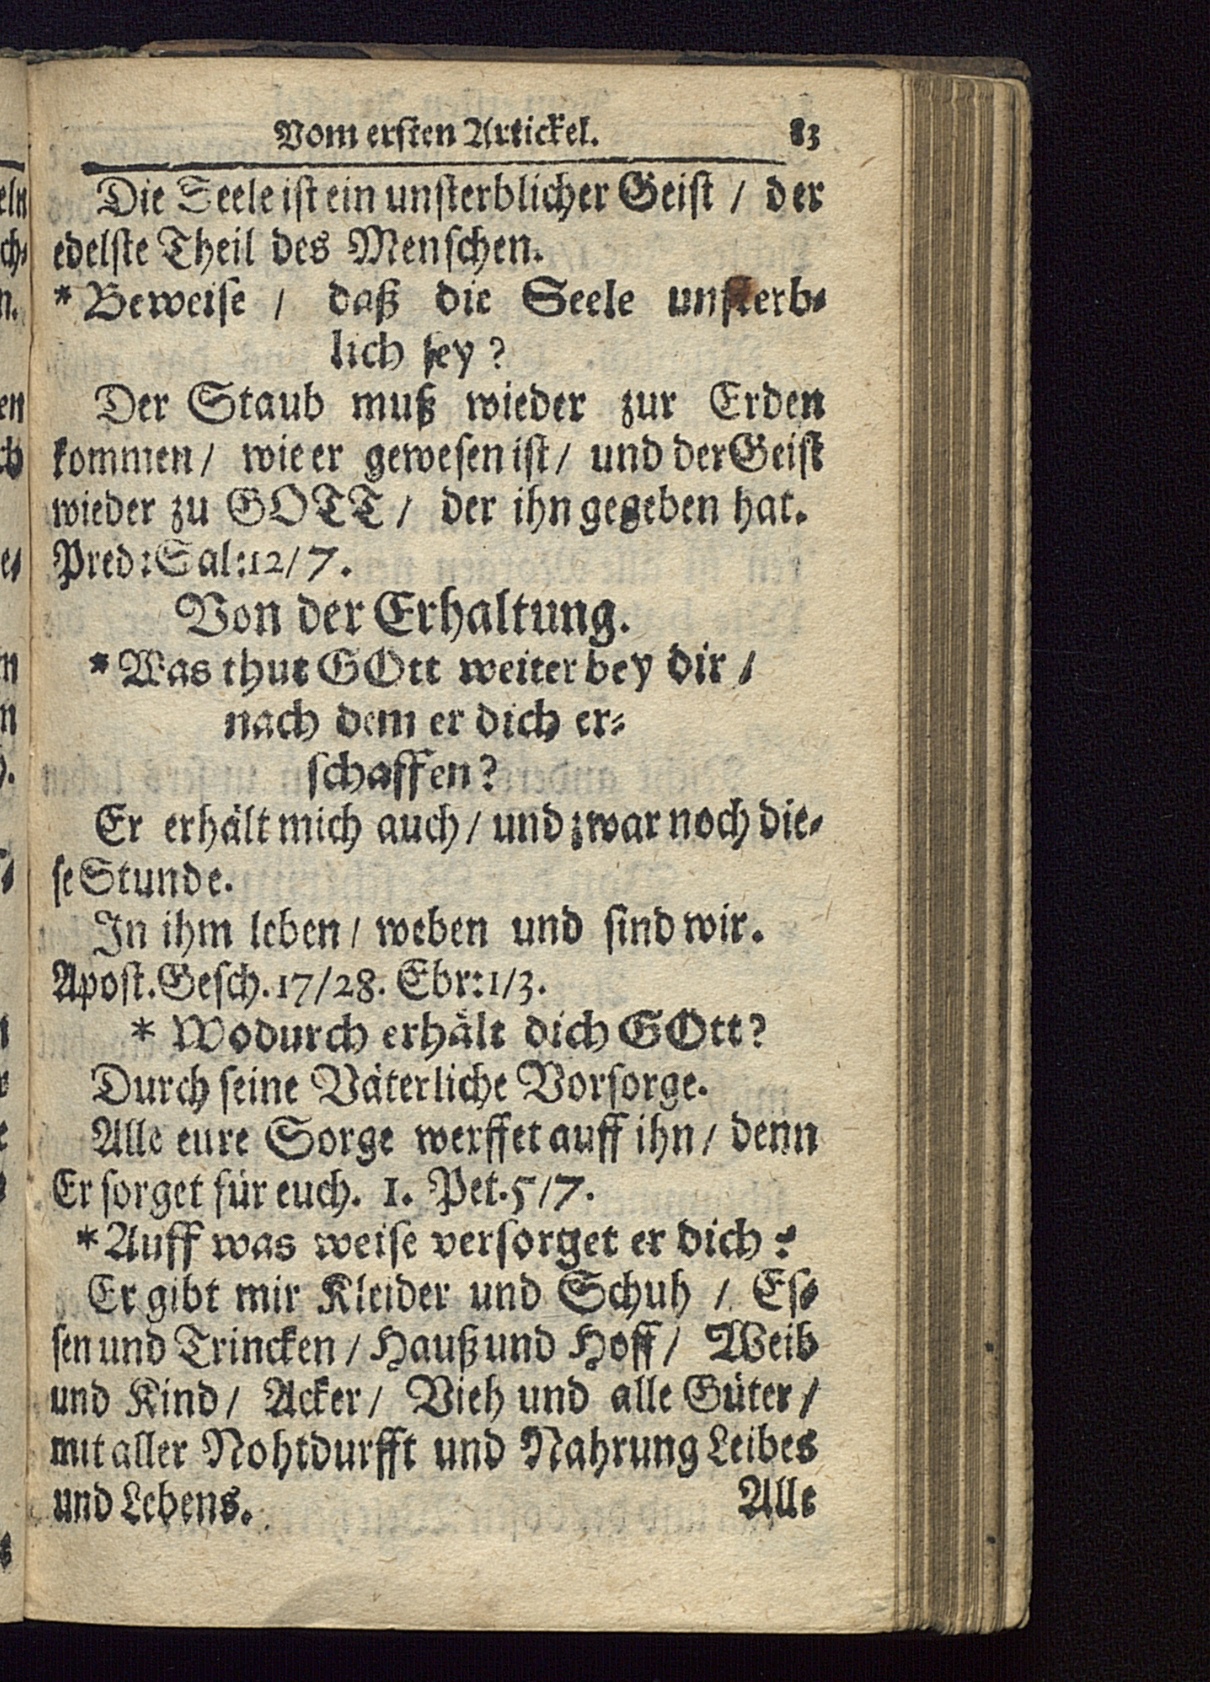 Vom ersten Artickel. 83
Die Seele ist ein unsterblicher Geist / der
edelste Theil des Menschen.
* Beweise / daß die Seele unsterb-
lich sey?
Der Staub muß wieder zur Erden
kommen / wie er gewesen ist / und der Geist
wieder zu GOTT / der ihn gegeben hat.
Pred: Sal: 12/7.
Von der Erhaltung.
* Was thut GOtt weiter bey dir /
nach dem er dich er-
schaffen?
Er erhält mich auch / und zwar noch die-
se Stunde.
In ihm leben / weben und sind wir.
Apost. Gesch. 17/28. Ebr: 1/3.
* Wodurch erhält dich GOtt?
Durch seine Väterliche Vorsorge.
Alle eure Sorge werffet auff ihn / denn
Er sorget für euch. 1. Pet. 5/7.
* Auff was weise versorget er dich?
Er gibt mir Kleider und Schuh / Es-
sen und Trincken / Hauß und Hoff / Weib
und Kind / Acker / Vieh und alle Güter /
mit aller Nohtdurfft und Nahrung Leibes
und Lebens. Alle